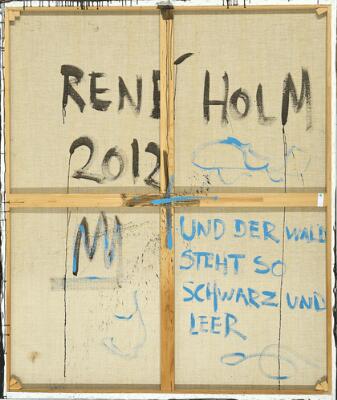 RENÉ HOLM
2012
UND DER WALD
STEHT SO
SCHWARZ UND
LEER